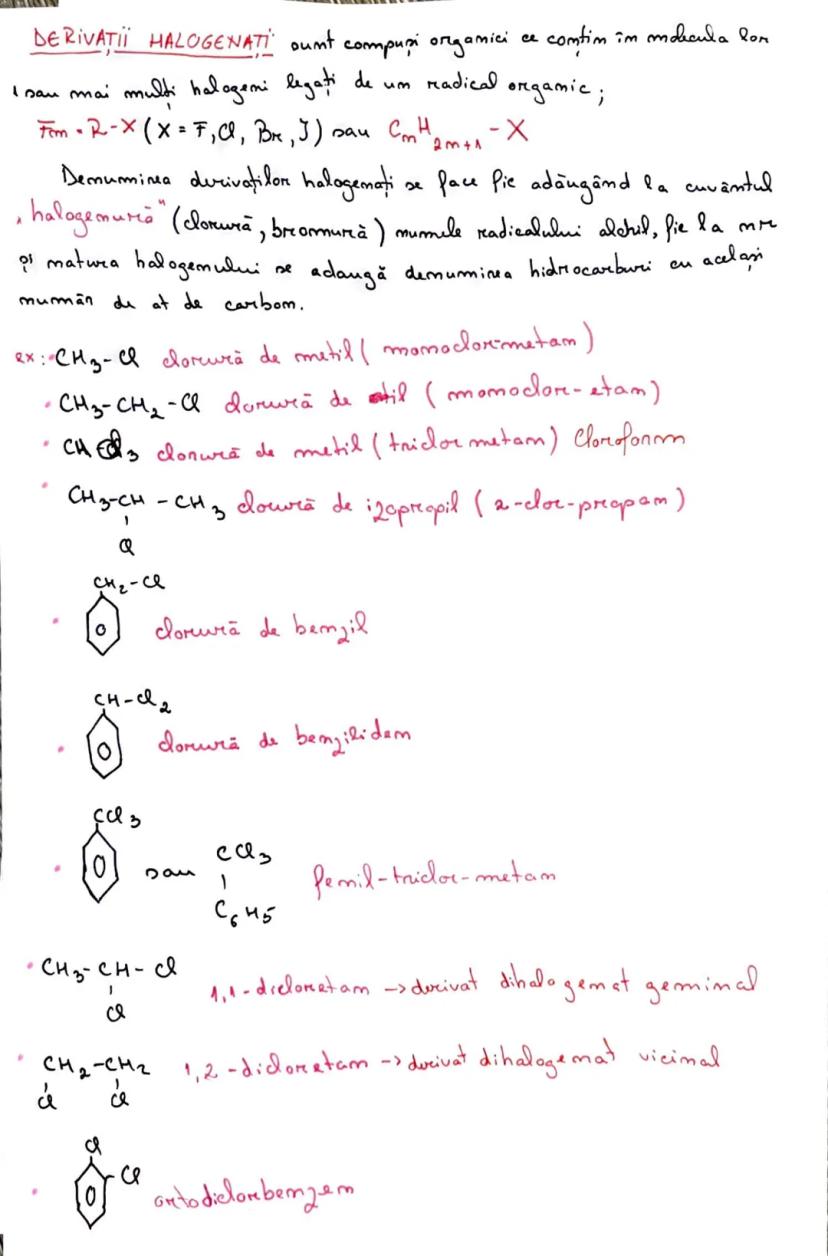 DERIVAȚII HALOGENAȚI sunt compuși organici ce conțin în molecula lor
1 sau mai mulți halogeni legați de un radical organic;
Fm = R-X (X = F, Cl, Br, I) sau CnH2n+1 - X
Denumirea derivaților halogenați se face fie adăugând la cuvântul
„halogenură" (clorură, bromură) numele radicalului alchil, fie la nr
și natura halogenului se adaugă denumirea hidrocarburi cu același
număr de at de carbon.
ex: • CH3-Cl clorură de metil (monoclor-metan)
• CH3-CH2-Cl clorură de etil (monoclor-etan)
• CHCl3 clorură de metil (triclor metan) Cloroform
• CH3-CH - CH3 clorură de izopropil (2-clor-propan)
Cl
CH2-Cl
• clorură de benzil
CH-Cl2
• clorură de benziliden
CCl3
• sau CCl3 fenil-triclor-metan
C6H5
• CH3-CH-Cl 1,1-dicloretan -> derivat dihalogenat geminal
Cl
• CH2-CH2 1,2-dicloretan -> derivat dihalogenat vicinal
Cl Cl
Cl
• Cl ortodiclorbenzen